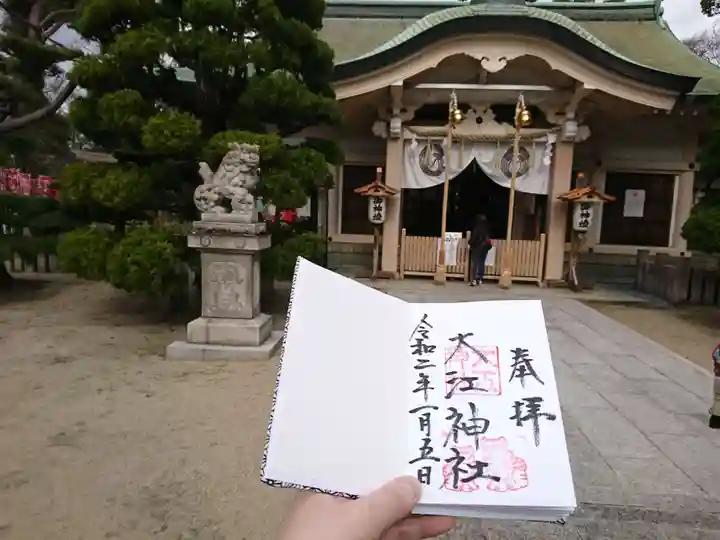 奉拝
大江神社
令和二年一月五日
御神燈